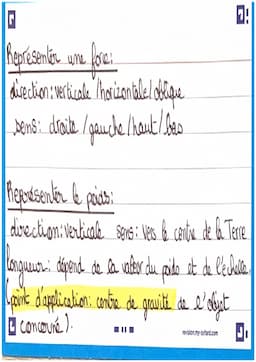 Représenter une force:
direction: verticale / horizontale / oblique
sens: droite / gauche / haut / bas
Représenter le poids:
direction: verticale sens: vers le centre de la Terre
longueur: dépend de la valeur du poids et de l'échelle
(point d'application: centre de gravité de l'objet
concerné).